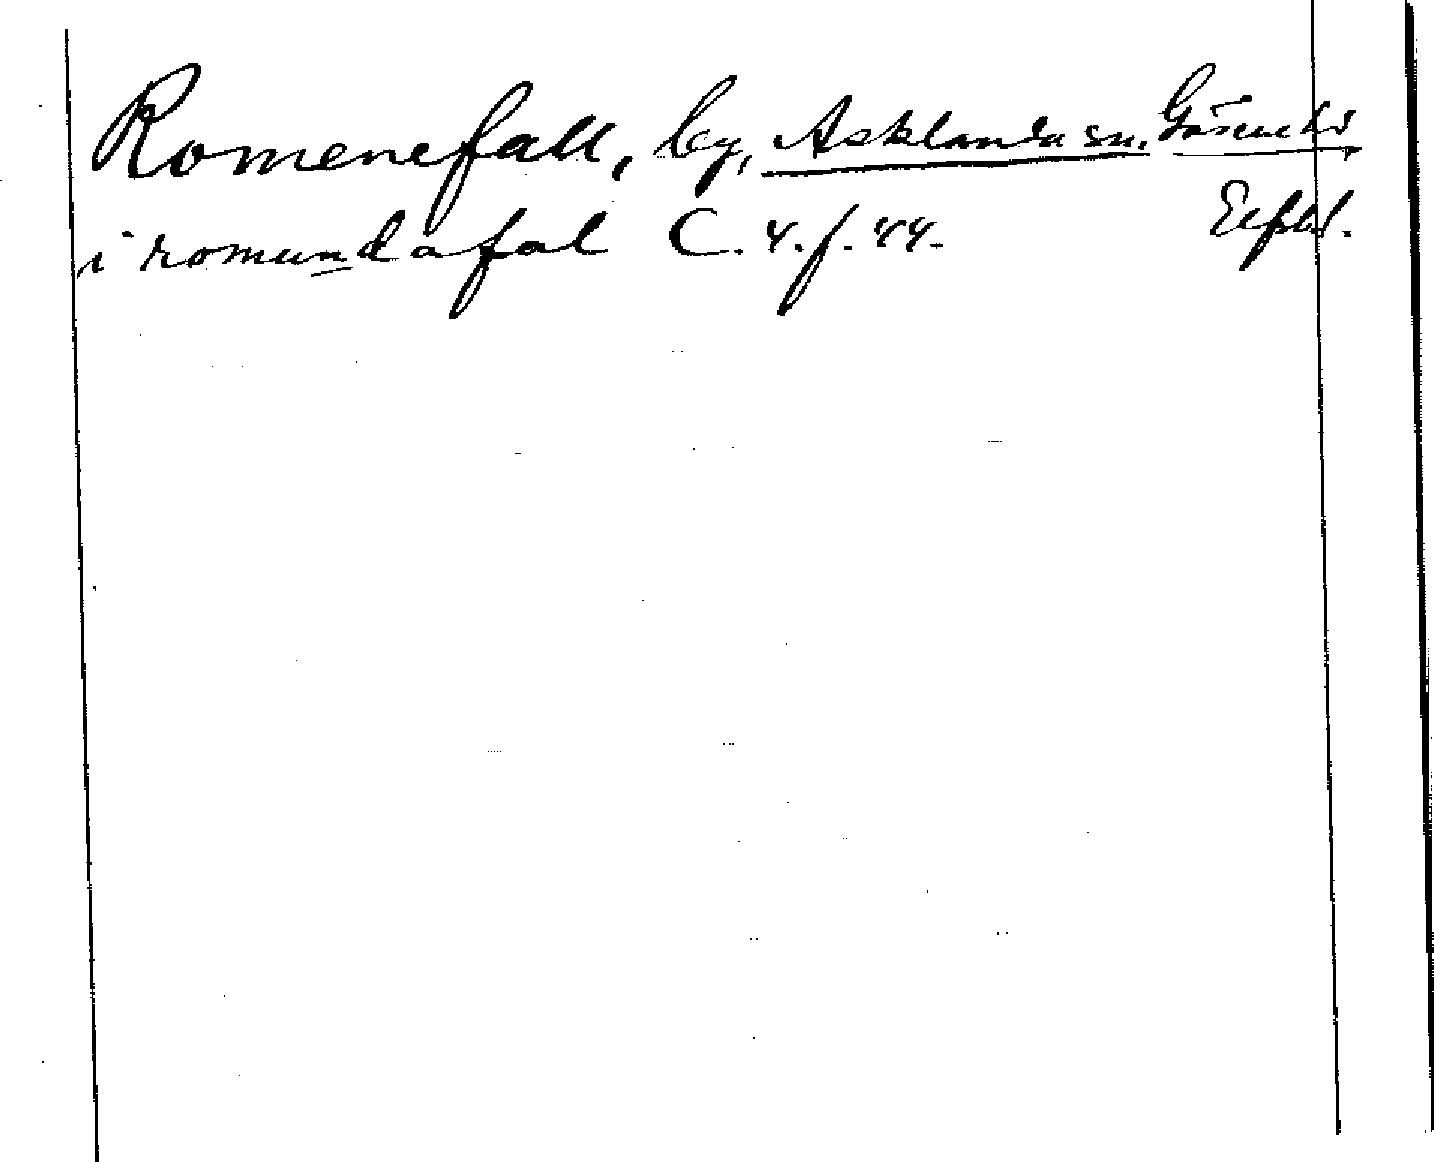 Romenefall, by, Asklanda sn. Gäsene hd
i romundafal C. 4. f. 44. Elfsb.